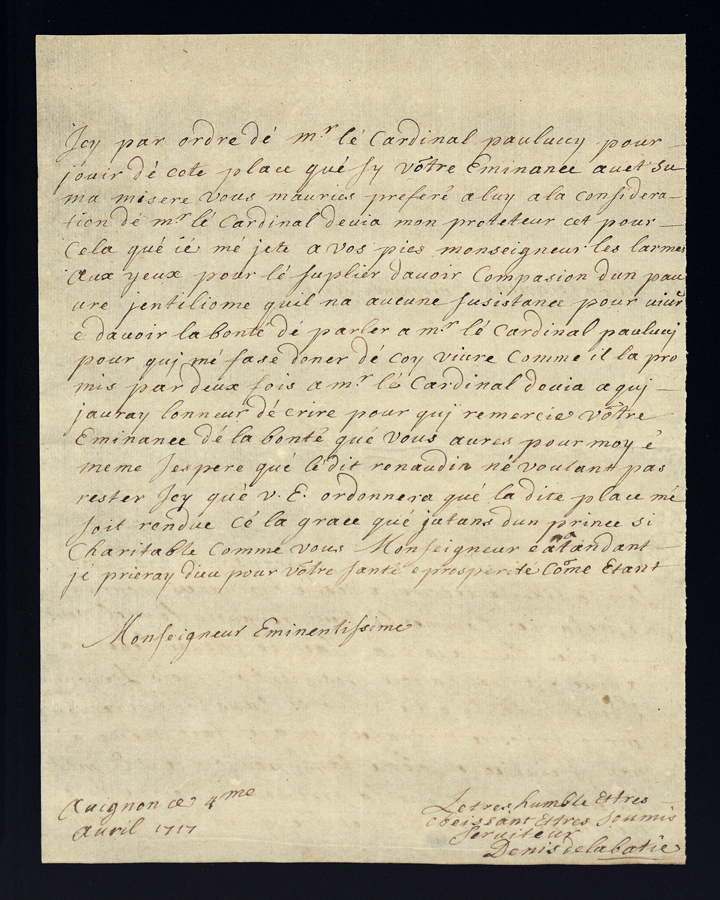 Jcy par ordre dé mr lé Cardinal pauluccy pour
jouir dé cote place qué sy vôtre Eminance auet su
ma misere vous mauries preferé a luy a la considera-
tion dé mr lé Cardinal deuia mon proteteur cet pour
Cela qué ié mé jete a vos pies monseigneur les larmes
aux yeux pour lé suplier dauoir Compasion dun pau
ure jentiliome quil na aucune susistance pour viure
é dauoir la bonté dé parler a mr lé Cardinal paulucij
pour quj mé fase doner dé coy viure Comme il la pro
mis par deux fois a mr lé Cardinal deuia a quj
jauray lonneur dé crire pour quj remercie vôtre
Eminance dé la bonté qué vous aures pour moy é
meme Jespere qué lé dit renaudin né voulant pas
rester Jcy qué v. E. ordonnera qué la dite place mé
soit rendue Cé la grace qué jatans dun prince si
Charitable Comme vous Monseigneur é atandant
jé prieray dieu pour vôtre santé é prosperité Côme Etant
Monseigneur Eminentissime
Auignon ce 4me
Auril 1717
Le tres humble Et tres
obeissant Et tres soumis
seruiteur
Denis de la batie